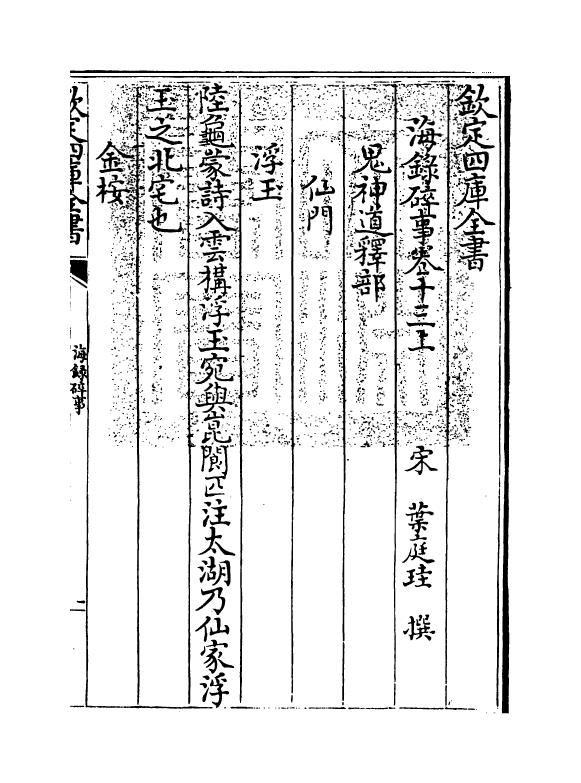 欽定四庫全書
海錄碎事卷十三上　宋　葉庭珪　撰
鬼神道釋部
仙門
浮玉
陸龜蒙詩入雲構浮玉宛與崑閬匹注太湖乃仙家浮
玉之北宅也
金桉
欽定四庫全書
海錄碎事